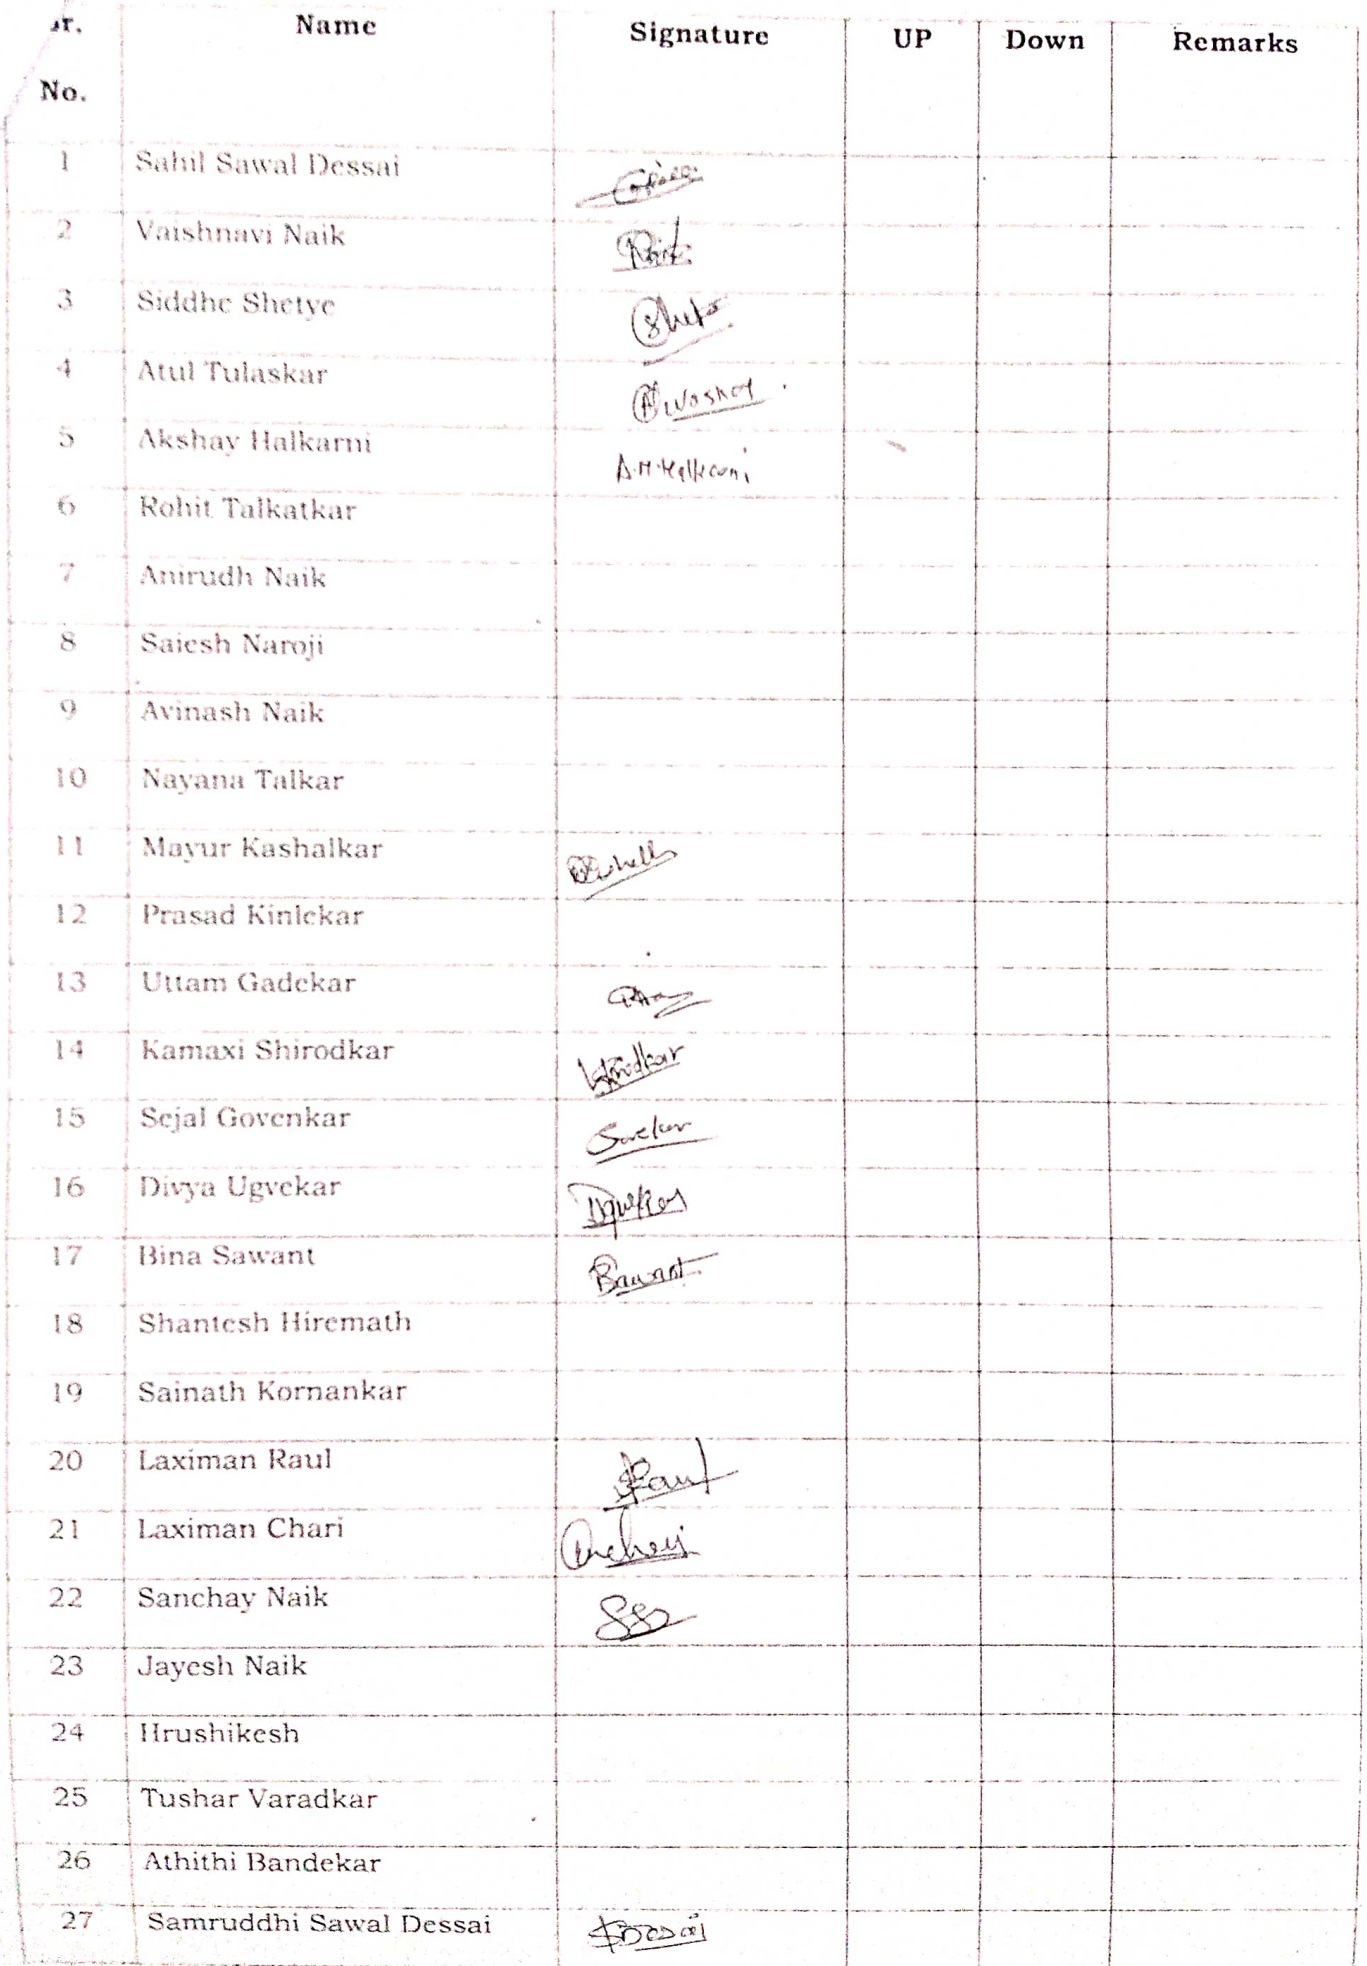 Name Signature UP Down Remarks
No.
1 Sahil Sawal Dessai
2 Vaishnavi Naik Naik
3 Siddhe Shetye Shete
4 Atul Tulaskar
5 Akshay Halkarni A.M.Halkarni
6 Rohit Talkatkar
7 Anirudh Naik
8 Saiesh Naroji
9 Avinash Naik
10 Nayana Talkar
11 Mayur Kashalkar
12 Prasad Kinlekar
13 Uttam Gadekar
14 Kamaxi Shirodkar kshirodkar
15 Sejal Govenkar
16 Divya Ugvekar
17 Bina Sawant Bsawant
18 Shantesh Hiremath
19 Sainath Kornankar
20 Laximan Raul Raul
21 Laximan Chari
22 Sanchay Naik
23 Jayesh Naik
24 Hrushikesh
25 Tushar Varadkar
26 Athithi Bandekar
27 Samruddhi Sawal Dessai SDessai